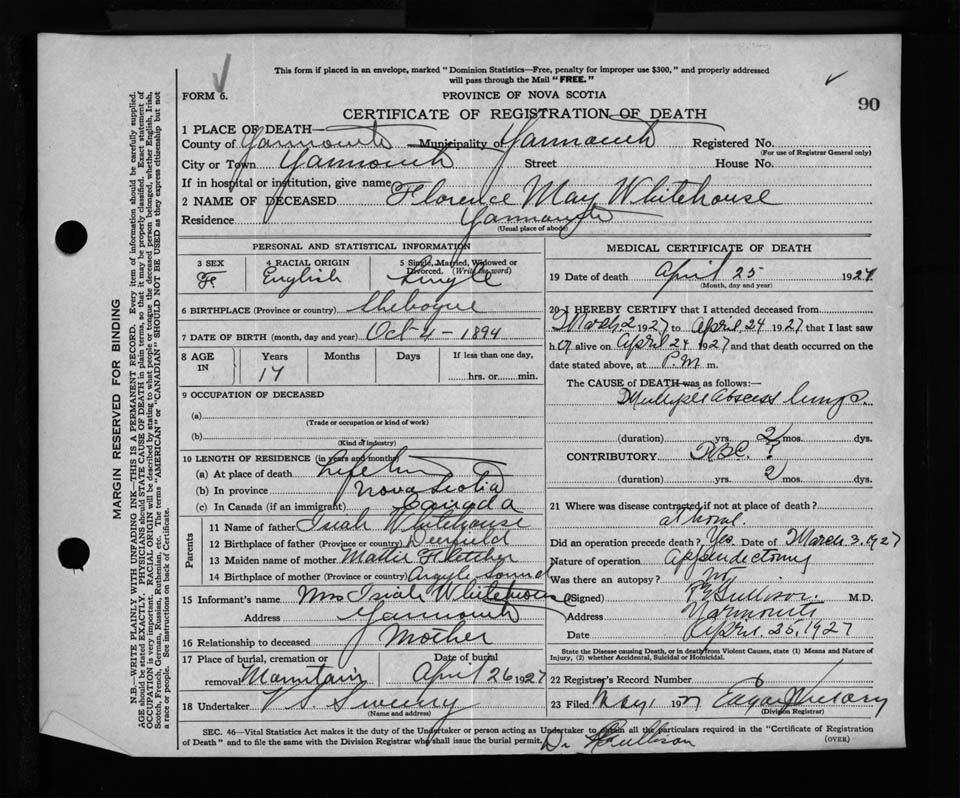 This form if placed in an envelope, marked "Dominion Statistics—Free, penalty for improper use $300," and properly addressed
will pass through the Mail "FREE."
FORM 6.
PROVINCE OF NOVA SCOTIA
90
CERTIFICATE OF REGISTRATION OF DEATH
1 PLACE OF DEATH—
County of Yarmouth Municipality of Yarmouth Registered No.
(For use of Registrar General only)
City or Town Yarmouth Street House No.
If in hospital or institution, give name
2 NAME OF DECEASED Florence May Whitehouse
Residence Yarmouth
(Usual place of abode)
PERSONAL AND STATISTICAL INFORMATION
3 SEX 4 RACIAL ORIGIN 5 Single, Married, Widowed or Divorced. (Write the word)
F English Single
6 BIRTHPLACE (Province or country) Chebogue
7 DATE OF BIRTH (month, day and year) Oct 4 - 1894
8 AGE IN Years Months Days If less than one day,
17 hrs. or min.
9 OCCUPATION OF DECEASED
(a)
(Trade or occupation or kind of work)
(b)
(Kind of industry)
10 LENGTH OF RESIDENCE (in years and months)
(a) At place of death Life
(b) In province Nova Scotia
(c) In Canada (if an immigrant) Canada
Parents
11 Name of father Isiah Whitehouse
12 Birthplace of father (Province or country) Deerfield
13 Maiden name of mother Mattie Fletcher
14 Birthplace of mother (Province or country) Argyle Sound
15 Informant's name Mrs Isiah Whitehouse
Address Yarmouth
16 Relationship to deceased Mother
17 Place of burial, cremation or removal Mountain Date of burial April 26 1927
18 Undertaker V S. Sweeny
(Name and address)
MEDICAL CERTIFICATE OF DEATH
19 Date of death April 25 1927
(Month, day and year)
20 I HEREBY CERTIFY that I attended deceased from
March 2 1927 to April 24 1927 that I last saw
her alive on April 24 1927 and that death occurred on the
date stated above, at P.M m.
The CAUSE of DEATH was as follows:—
Multiple Abscess lungs.
(duration) yrs. 2 mos. dys.
CONTRIBUTORY TBC. ?
(duration) yrs. 2 mos. dys.
21 Where was disease contracted if not at place of death?
at home.
Did an operation precede death? Yes. Date of March 3. 1927
Nature of operation Appendectomy
Was there an autopsy? no
(Signed) M.D.
Address Yarmouth
Date April. 25, 1927
State the Disease causing Death, or in death from Violent Causes, state (1) Means and Nature of
Injury, (2) whether Accidental, Suicidal or Homicidal.
22 Registrar's Record Number
23 Filed May 1 1927
(Division Registrar)
SEC. 46—Vital Statistics Act makes it the duty of the Undertaker or person acting as Undertaker to obtain all the particulars required in the "Certificate of Registration
of Death" and to file the same with the Division Registrar who shall issue the burial permit.
(OVER)
Dr
MARGIN RESERVED FOR BINDING
N.B.—WRITE PLAINLY WITH UNFADING INK—THIS IS A PERMANENT RECORD. Every item of information should be carefully supplied.
AGE should be stated EXACTLY. PHYSICIANS should STATE CAUSE OF DEATH in plain terms, so that it may be properly classified. Exact statement of
OCCUPATION is very important. RACIAL ORIGIN will be described by stating to what people or tongue the deceased person belonged, whether English, Irish,
Scotch, French, German, Russian, Ruthenian, etc. The terms "AMERICAN" or "CANADIAN" SHOULD NOT BE USED as they express citizenship but not
a race or people. See instructions on back of Certificate.